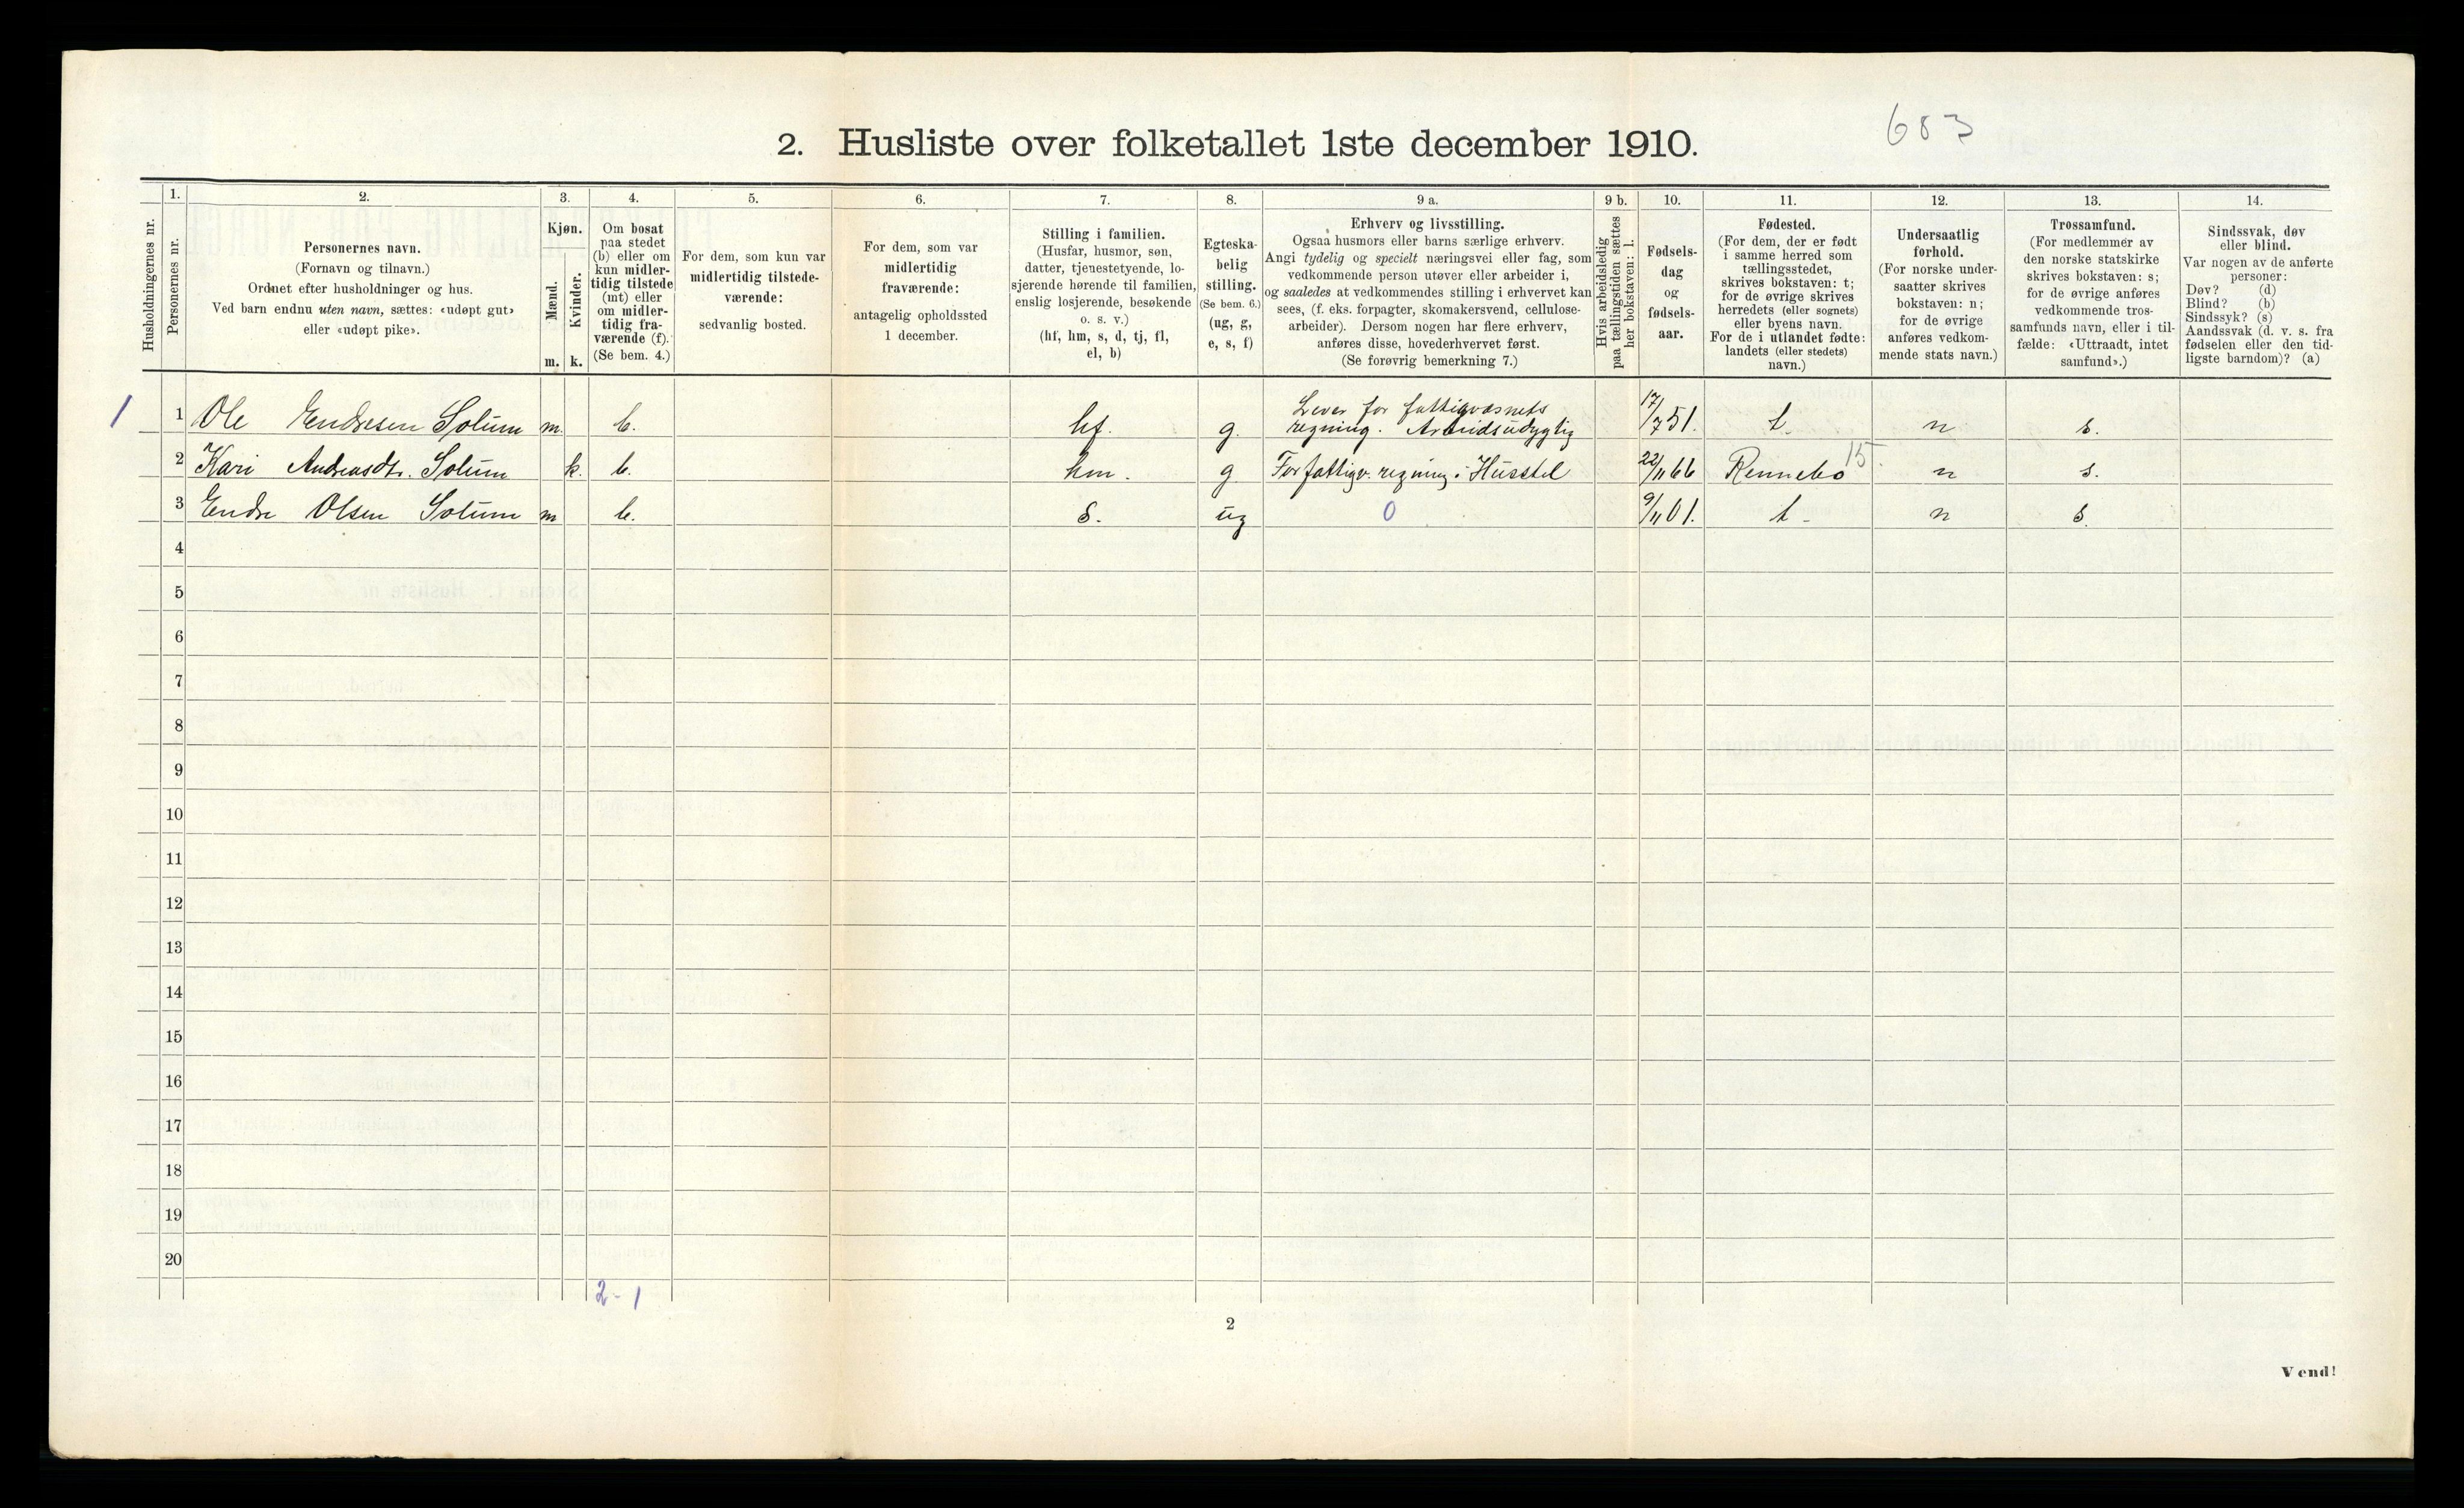 683
2. Husliste over folketallet 1ste december 1910.
Husholdningernes nr.
1.
Personernes nr.
2.
Personernes navn.
(Fornavn og tilnavn.)
Ordnet efter husholdninger og hus.
Ved barn endnu uten navn, sættes: «udøpt gut»
eller «udøpt pike».
3.
Kjøn.
Mænd.
m.
Kvinder.
k.
4.
Om bosat
paa stedet
(b) eller om
kun midler-
tidig tilstede
(mt) eller
om midler-
tidig fra-
værende (f).
(Se bem. 4.)
5.
For dem, som kun var
midlertidig tilstede-
værende:
sedvanlig bosted.
6.
For dem, som var
midlertidig
fraværende:
antagelig opholdssted
1 december.
7.
Stilling i familien.
(Husfar, husmor, søn,
datter, tjenestetyende, lo-
sjerende hørende til familien,
enslig losjerende, besøkende
o. s. v.)
(hf, hm, s, d, tj, fl,
el, b)
8.
Egteska-
belig
stilling.
(Se bem. 6.)
(ug, g,
e, s, f)
9 a.
Erhverv og livsstilling.
Ogsaa husmors eller barns særlige erhverv.
Angi tydelig og specielt næringsvei eller fag, som
vedkommende person utøver eller arbeider i,
og saaledes at vedkommendes stilling i erhvervet kan
sees, (f. eks. forpagter, skomakersvend, cellulose-
arbeider). Dersom nogen har flere erhverv,
anføres disse, hovederhvervet først.
(Se forøvrig bemerkning 7.)
9 b.
Hvis arbeidsledig
paa tællingstiden sættes
her bokstaven: l.
10.
Fødsels-
dag
og
fødsels-
aar.
11.
Fødested.
(For dem, der er født
i samme herred som
tællingsstedet,
skrives bokstaven: t;
for de øvrige skrives
herredets (eller sognets)
eller byens navn.
For de i utlandet fødte:
landets (eller stedets)
navn.)
12.
Undersaatlig
forhold.
(For norske under-
saatter skrives
bokstaven: n;
for de øvrige
anføres vedkom-
mende stats navn.)
13.
Trossamfund.
(For medlemmer av
den norske statskirke
skrives bokstaven: s;
for de øvrige anføres
vedkommende tros-
samfunds navn, eller i til-
fælde: «Uttraadt, intet
samfund».)
14.
Sindssvak, døv
eller blind.
Var nogen av de anførte
personer:
Døv? (d)
Blind? (b)
Sindssyk? (s)
Aandssvak (d. v. s. fra
fødselen eller den tid-
ligste barndom)? (a)
1 1 Ole Endresen Solum m. b. hf. g. Lever for fattigvæsnets
regning. Arbeidsudygtig 17/7 51. t. n s.
2 Kari Andreasdtr. Solum k. b. hm. g For fattigv. regning i Husstel 22/11 66 Rennebo 15. n s.
3 Endre Olsen Solum m b. s. ug 0 9/11 01. t. n s.
4
5
6
7
8
9
10
11
12
13
14
15
16
17
18
19
20
2-1
2
Vend!